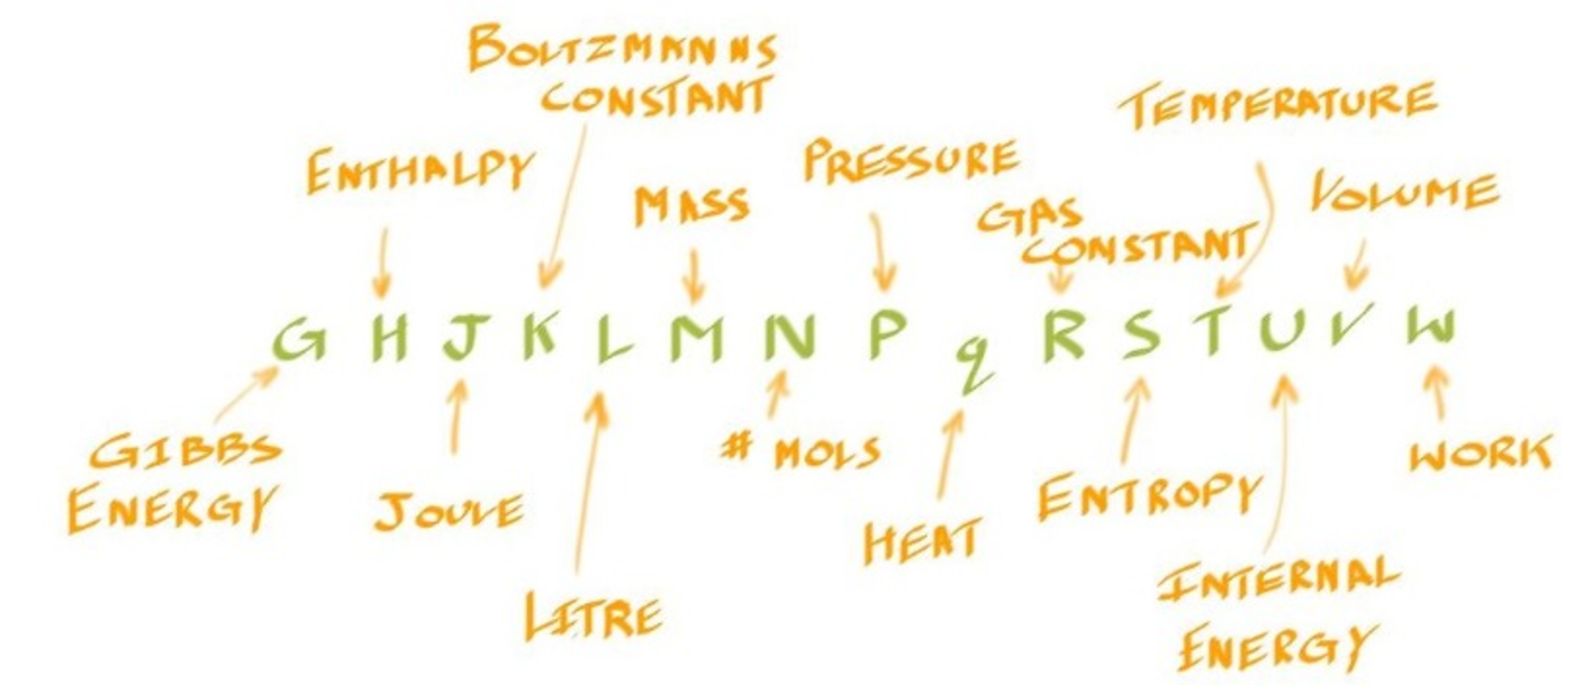 BOLTZMANNS
CONSTANT
TEMPERATURE
ENTHALPY
PRESSURE
MASS
VOLUME
GAS
CONSTANT
G H J K L M N P q R S T U V W
GIBBS
ENERGY
JOULE
LITRE
# MOLS
HEAT
ENTROPY
INTERNAL
ENERGY
WORK